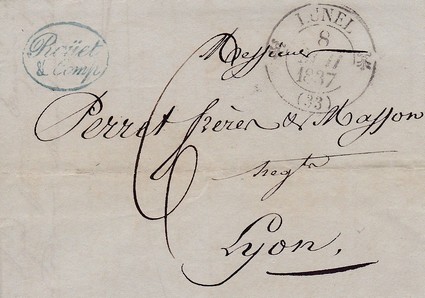 Roüet
& Comp
LUNEL
8
1837
(33)
Messieurs
6
Perret frères & Masson
negts
Lyon.